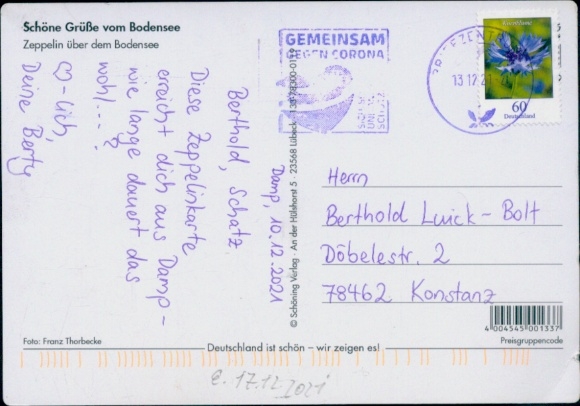 Schöne Grüße vom Bodensee
Zeppelin über dem Bodensee
GEMEINSAM
GEGEN CORONA
BRIEFZENTRUM
13.12.21
60
Deutschland
Damp, 10.12.2021
Berthold, Schatz.
Diese Zeppelinkarte
erreicht dich aus Damp –
wie lange dauert das
wohl....?
♡-lich,
Deine Berty
© Schöning Verlag · An der Hülshorst 5 · 23568 Lübeck
Herrn
Berthold Luick-Bolt
Döbelestr. 2
78462 Konstanz
4 004545 001337
Preisgruppencode
Foto: Franz Thorbecke
Deutschland ist schön – wir zeigen es!
e. 17.12.2021